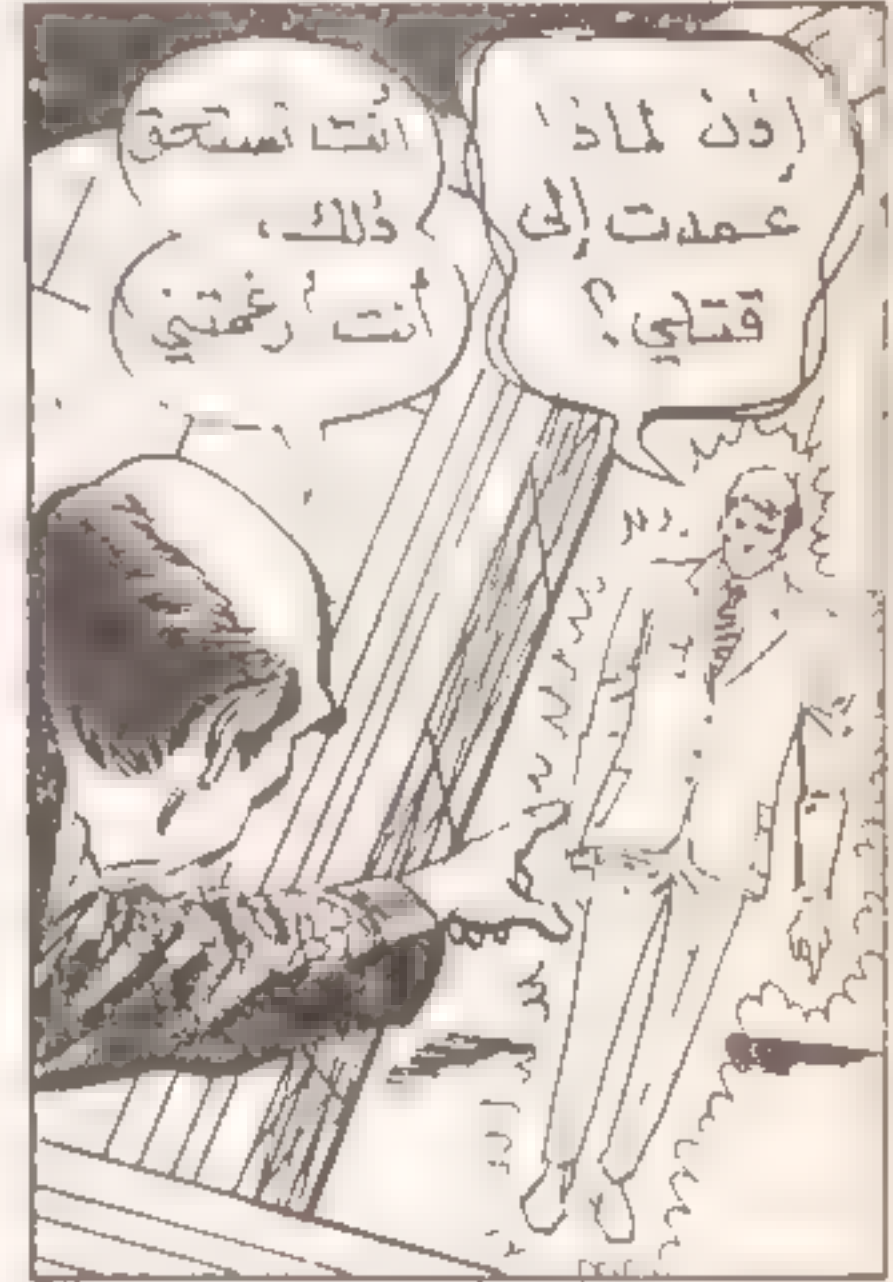 إذن لماذا
عمدت إلى
قتلي؟
أنت تستحق
ذلك،
أنت أرغمتني